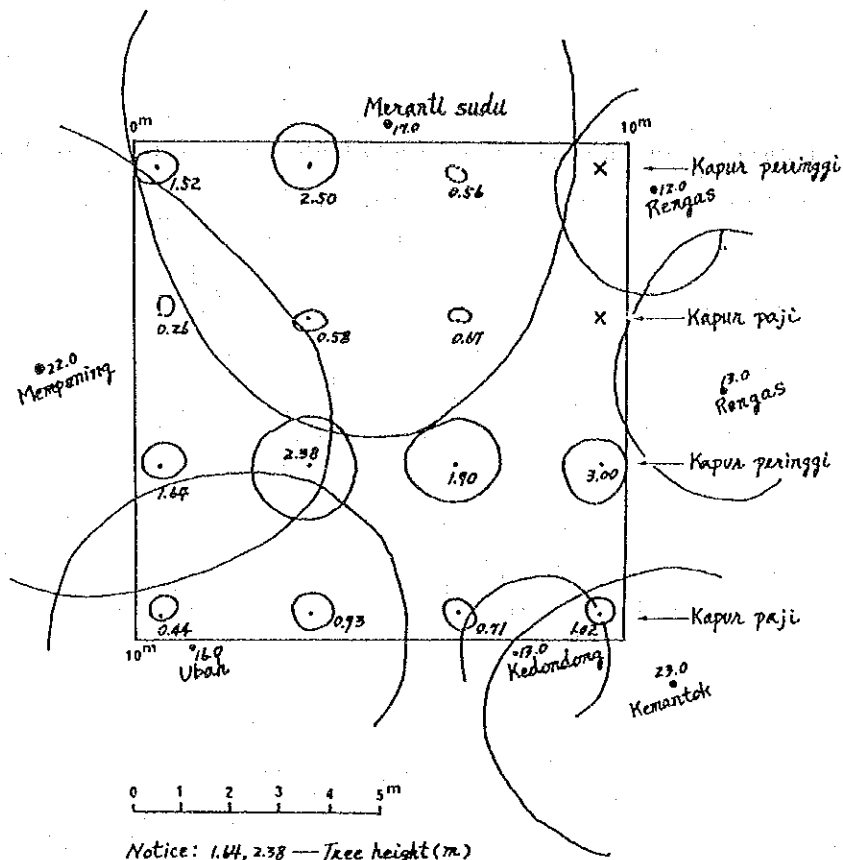 Meranti sudu
17.0
0m
10m
1.52
2.50
0.56
× ← Kapur peringgi
12.0
Rengas
0.26
0.58
0.67
× ← Kapur paji
22.0
Mempening
13.0
Rengas
1.64
2.38
1.90
3.00
← Kapur peringgi
0.44
0.93
0.71
1.02
← Kapur paji
10m
16.0
Ubah
13.0
Kedondong
23.0
Kemantok
0 1 2 3 4 5m
Notice: 1.64, 2.38 — Tree height (m)